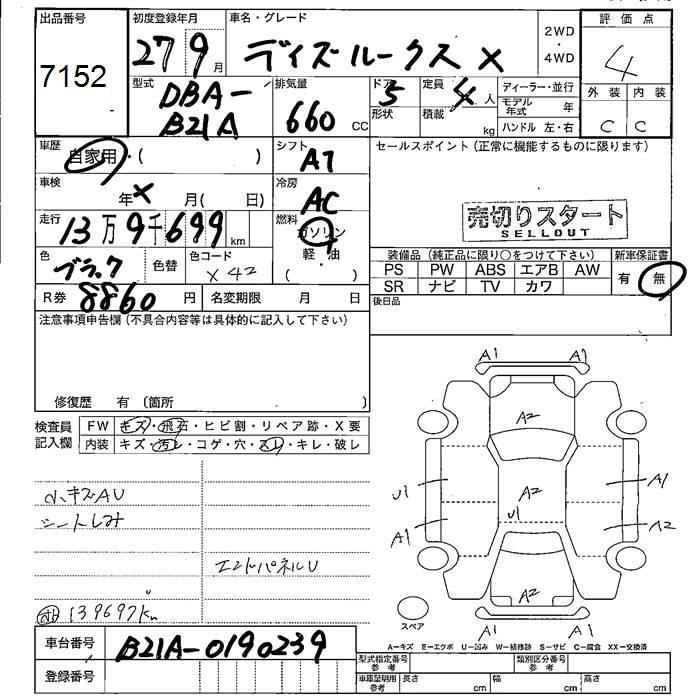 出品番号 7152
初度登録年月 27 9月
車名・グレード デイズルークス X
2WD・4WD
評価点 4
外装 内装
C C
型式 DBA-B21A
排気量 660 CC
ドア形状 5
定員 4人
積載 kg
ディーラー・並行
モデル年式 年
ハンドル 左・右
車歴 自家用・( )
シフト AT
セールスポイント(正常に機能するものに限ります)
車検 年 X 月( 日)
冷房 AC
売切りスタート
SELLOUT
走行 13万9千699km
燃料 ガソリン 軽・油 ( )
色 ブラック 色替
色コード X42
装備品(純正品に限り○をつけて下さい) 新車保証書
PS PW ABS エアB AW 有 無
SR ナビ TV カワ
R券 8860円 名変期限 月 日
後日品
注意事項申告欄(不具合内容等は具体的に記入して下さい)
修復歴 有 (箇所 )
検査員記入欄 FW キズ・飛石・ヒビ割・リペア跡・X要
内装 キズ・汚レ・コゲ・穴・スレ・キレ・破レ
小キズAU
シートしみ
エンドパネルU
139697km
A1 A1
A2
U1 A2 A1
U1
A1 A2
A2
A1 A1
スペア
A-キズ E-エクボ U-凹み W-補修跡 S-サビ C-腐食 XX-交換済
車台番号 B21A-0190239
型式指定番号 参考 類別区分番号 参考
登録番号
車庫証明用 参考 長さ cm 幅 cm 高さ cm